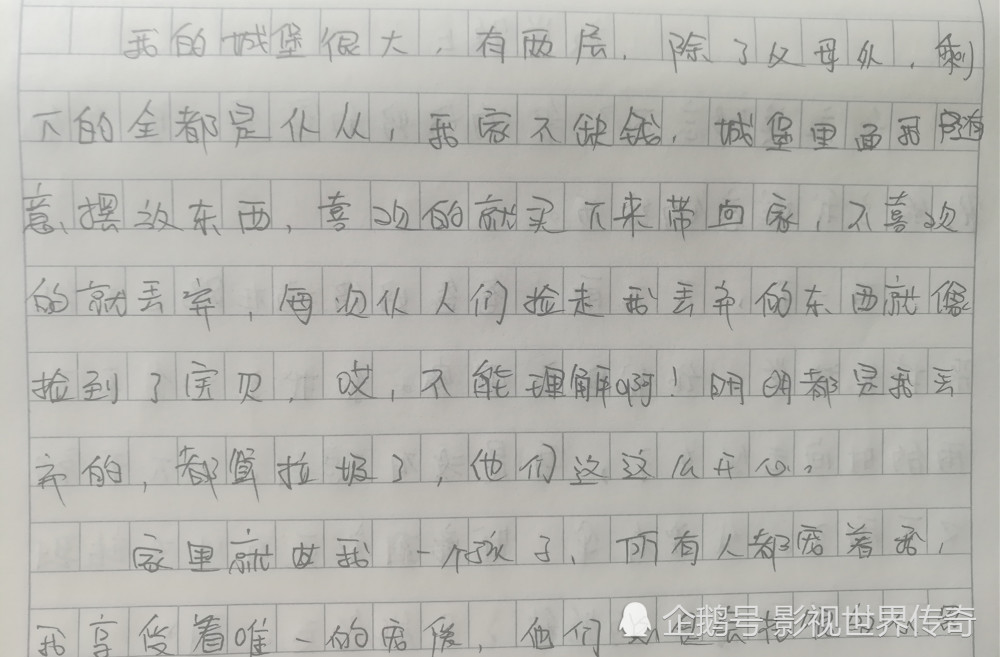 我的城堡很大，有两层，除了父母外，剩
下的全都是仆从，我家不缺钱，城堡里面我随
意、摆放东西，喜欢的就买下来带回家，不喜欢
的就丢弃，每次仆人们捡走我丢弃的东西就像
捡到了宝贝，哎，不能理解啊！明明都是我丢
弃的，都算垃圾了，他们这这么开心。
家里就我一个孩子，所有人都宠着我，
我享受着唯一的宠爱，他们
企鹅号 影视世界传奇